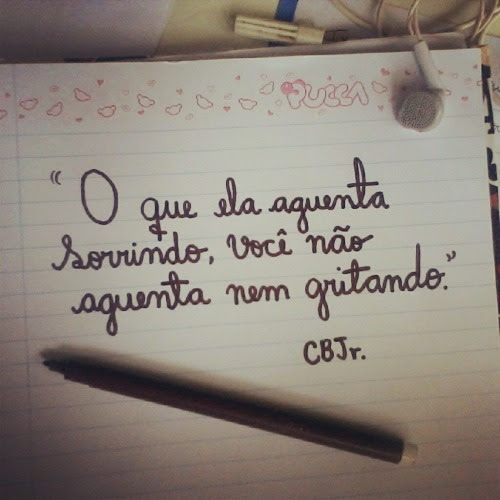 PUCCA
"O que ela aguenta
sorrindo, você não
aguenta nem gritando."
CBJr.